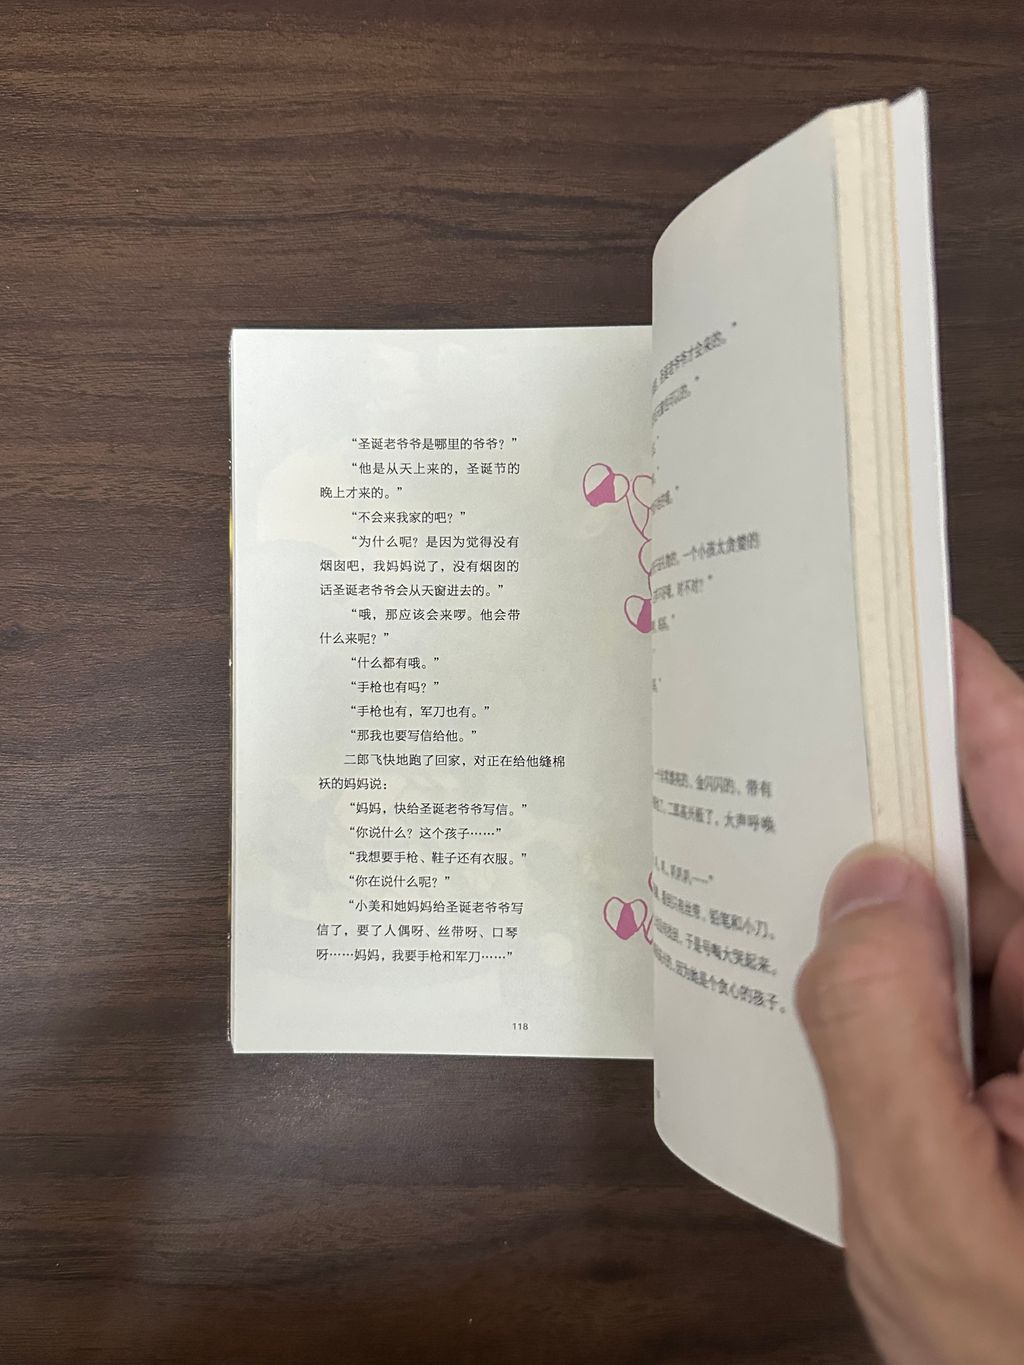 “圣诞老爷爷是哪里的爷爷？”
“他是从天上来的，圣诞节的
晚上才来的。”
“不会来我家的吧？”
“为什么呢？是因为觉得没有
烟囱吧，我妈妈说了，没有烟囱的
话圣诞老爷爷会从天窗进去的。”
“哦，那应该会来啰。他会带
什么来呢？”
“什么都有哦。”
“手枪也有吗？”
“手枪也有，军刀也有。”
“那我也要写信给他。”
二郎飞快地跑了回家，对正在给他缝棉
袄的妈妈说：
“妈妈，快给圣诞老爷爷写信。”
“你说什么？这个孩子……”
“我想要手枪、鞋子还有衣服。”
“你在说什么呢？”
“小美和她妈妈给圣诞老爷爷写
信了，要了人偶呀、丝带呀、口琴
呀……妈妈，我要手枪和军刀……”
118
圣诞老爷爷才会来的。”
一个小孩太贪婪的
对不对？”
金闪闪的、带有
二郎高兴极了，大声呼唤
铅笔和小刀。
于是号啕大哭起来。
因为她是个贪心的孩子。